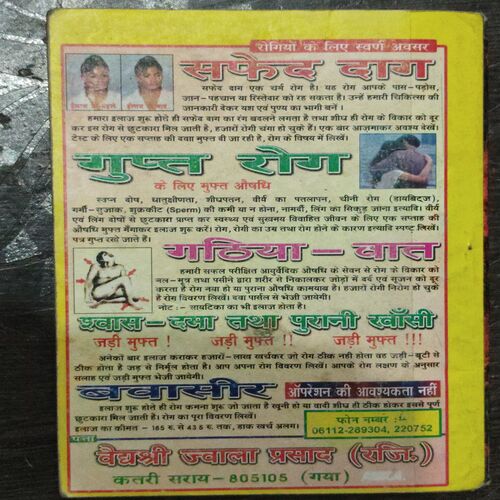 रोगियों के लिए स्वर्ण अवसर
सफेद दाग
सफेद दाग एक चर्म रोग है। यह रोग आपके पास-पड़ोस,
जान-पहचान या रिस्तेदार को रह सकता है। उन्हें हमारी चिकित्सा की
जानकारी देकर यश एवं पुण्य का भागी बनें।
हमारा इलाज शुरू होते ही सफेद दाग का रंग बदलने लगता है तथा शीघ्र ही रोग के विकार को दूर
कर इस रोग से छुटकारा मिल जाती है, हजारों रोगी चंगा हो चुके हैं। एक बार आजमाकर अवश्य देखें।
टेस्ट के लिए एक सप्ताह की दवा मुफ्त दी जा रही है, रोग के विषय में लिखें।
गुप्त रोग
के लिए मुफ्त औषधि
स्वप्न दोष, धातुक्षीणता, शीघ्रपतन, वीर्य का पतलापन, चीनी रोग (डायबिट्ज),
गर्मी-सुजाक, शुक्रकीट (Sperm) की कमी या न होना, नामर्दी, लिंग का सिकुड़ जाना इत्यादि। वीर्य
एवं लिंग दोषों से छुटकारा प्राप्त कर स्वच्छ एवं सुखमय विवाहित जीवन के लिए एक सप्ताह की
औषधि मुफ्त मँगाकर इलाज शुरू करें। रोग, रोगी का उम्र तथा रोग होने के कारण इत्यादि स्पष्ट लिखें।
पत्र गुप्त रखे जाते हैं।
गठिया - वात
हमारी सफल परीक्षित आयुर्वेदिक औषधि के सेवन से रोग के विकार को
मल-मूत्र तथा पसीने द्वारा शरीर से निकालकर जोड़ों में दर्द एवं सूजन को दूर
करता है रोग नया हो या पुराना औषधि कामयाब है। हजारों रोगी निरोग हो चुके
हैं रोग विवरण लिखें। दवा पार्सल से भेजी जायेगी।
नोट :- सायटिका का भी इलाज होता है।
श्वास-दमा तथा पुरानी खाँसी
जड़ी मुफ्त ! जड़ी मुफ्त !! जड़ी मुफ्त !!!
अनेकों बार इलाज कराकर हजारों-लाख खर्चकर जो रोग ठीक नहीं होता वह जड़ी-बूटी से
ठीक होता है जड़ से निर्मूल होता है। आप अपना रोग विवरण लिखें। आपके रोग लक्षण के अनुसार
सलाह एवं जड़ी मुफ्त भेजी जायेगी।
बवासीर ऑपरेशन की आवश्यकता नहीं
इलाज शुरू होते ही रोग कमना शुरू जो जाता है खूनी हो या वादी शीघ्र ही ठीक होकर इससे पूर्ण
छुटकारा मिल जाता है। रोग का पूरा विवरण लिखें।
इलाज का कीमत - 165 रु. से 435 रु. तक, डाक खर्च अलग।
फोन नम्बर :-
06112-289304, 220752
वैद्यश्री ज्वाला प्रसाद (रजि.)
कतरी सराय-805105 (गया)